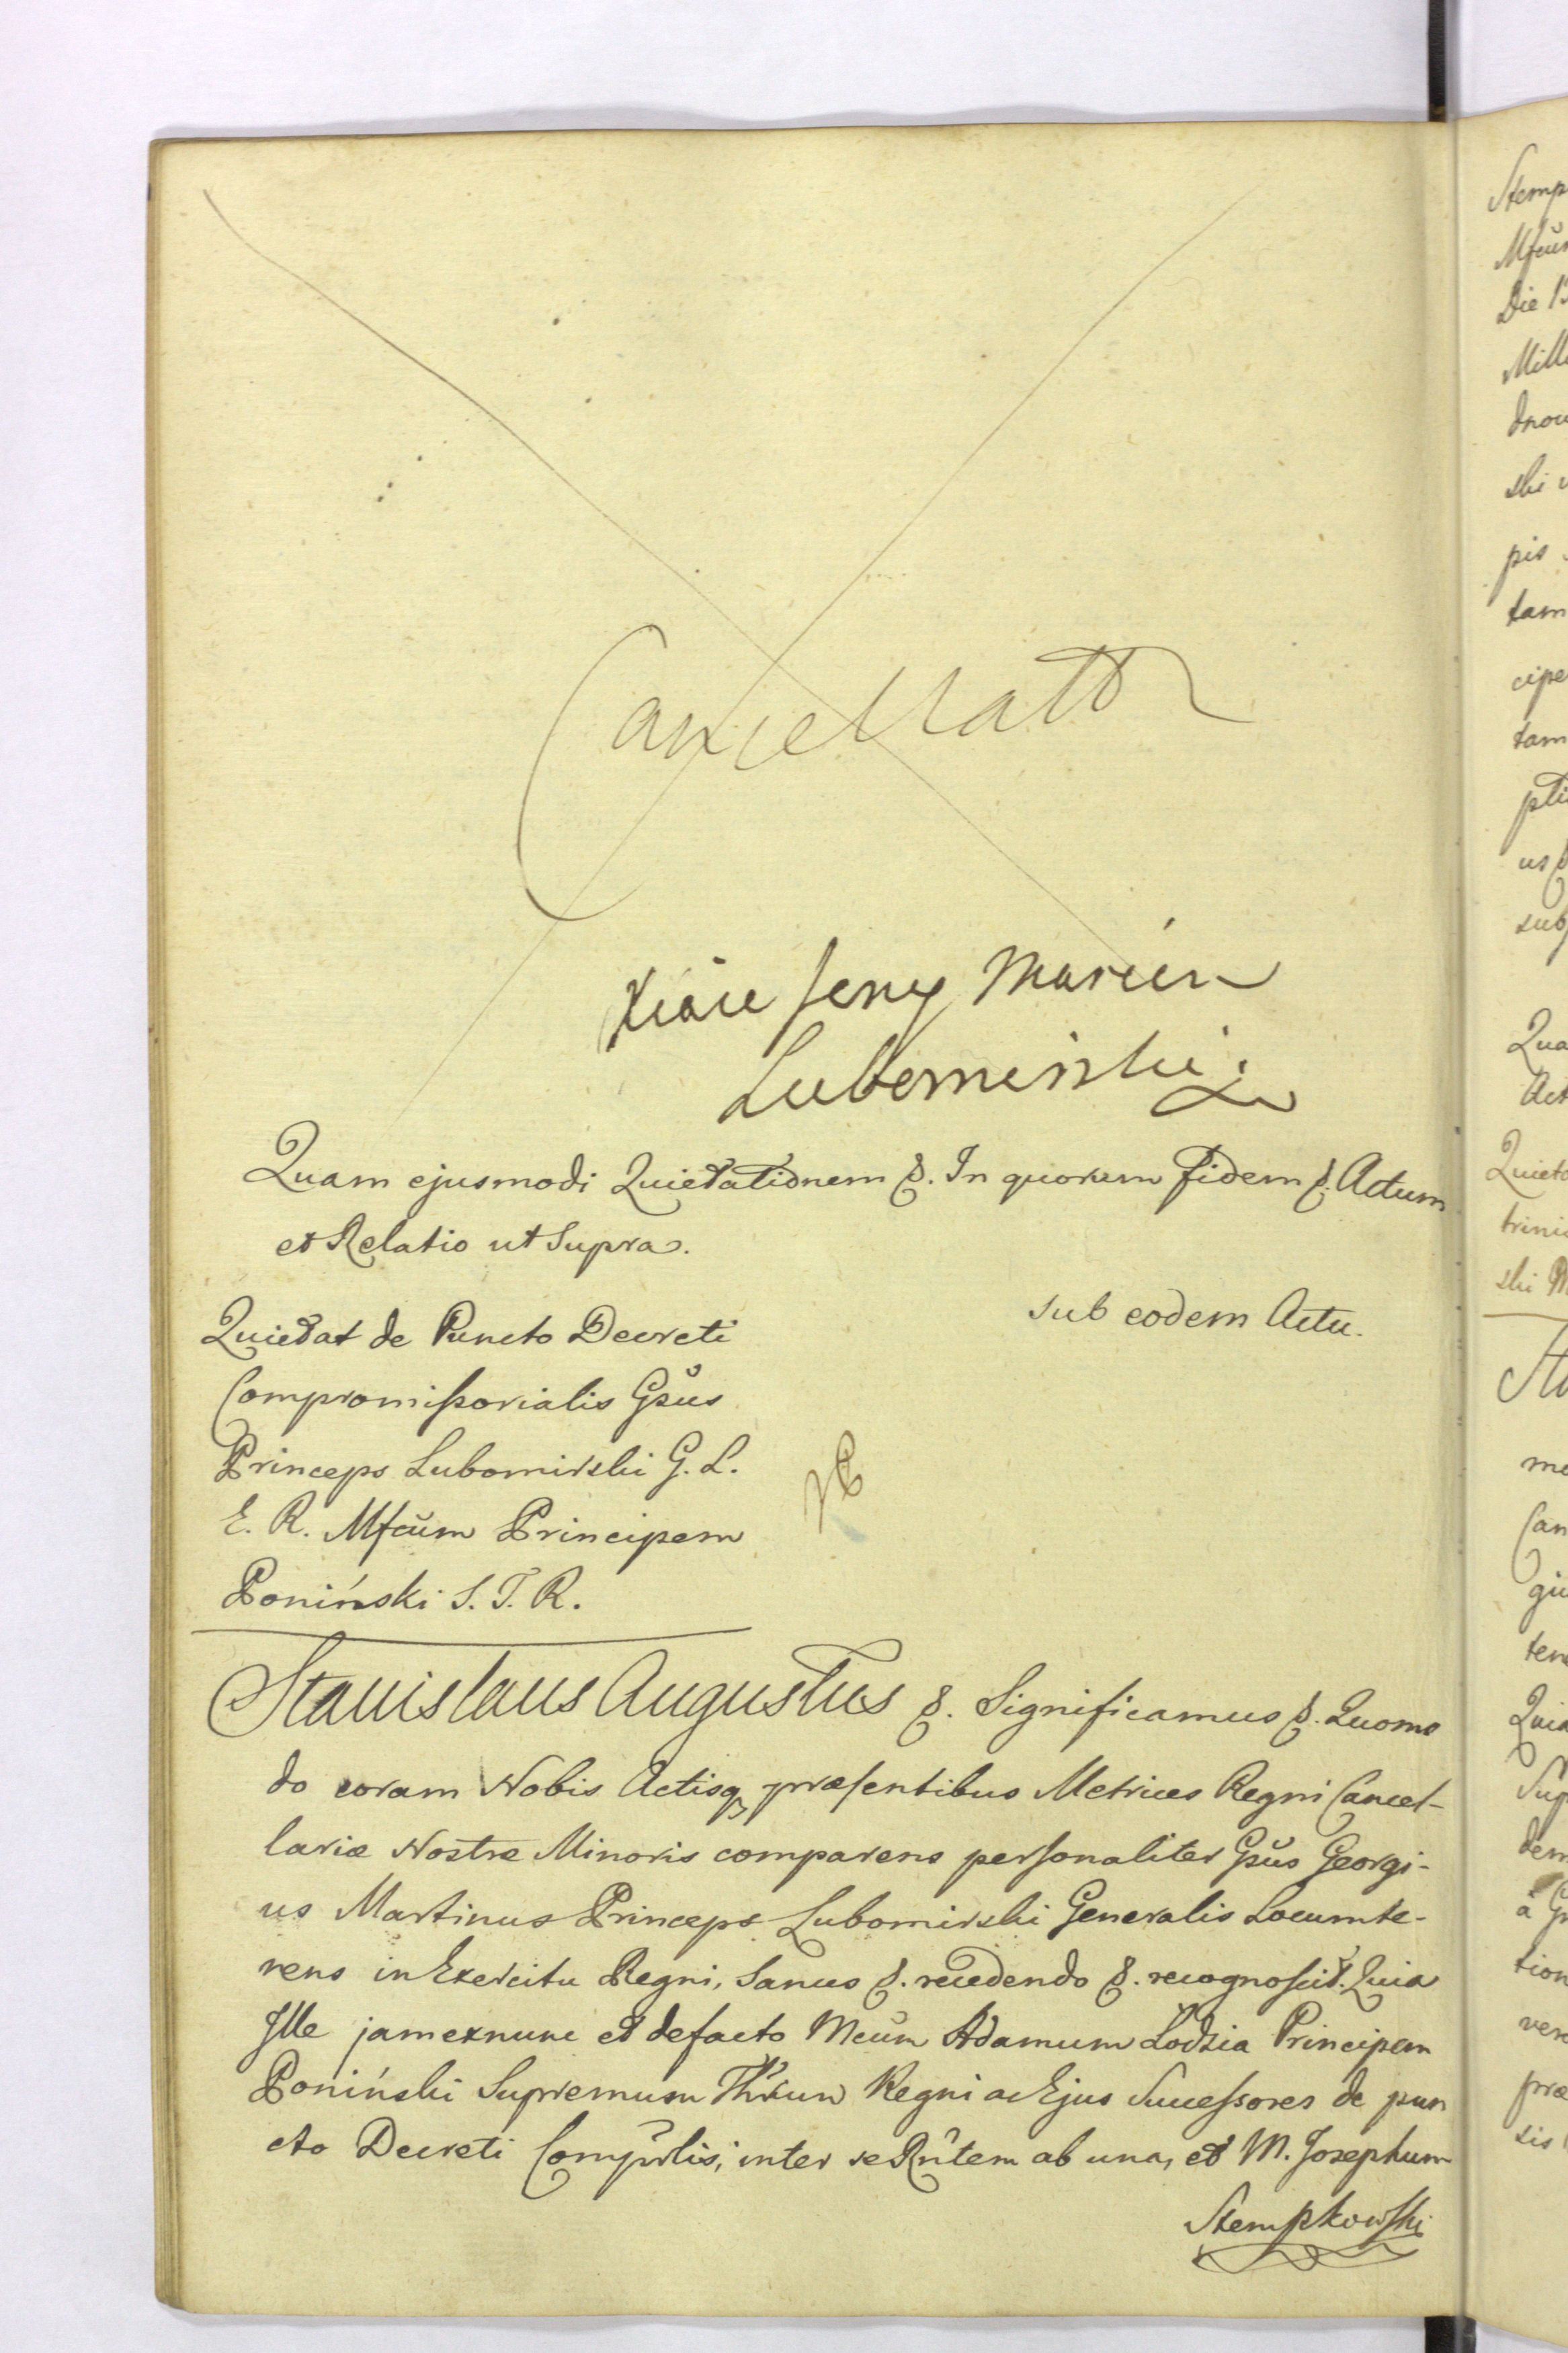 Cancellatt
Xiąże Jerzy Marcin
Lubomirski
Quam ejusmodi Quietationem &. In quorum fidem &. Actum
et Relatio ut Supra.
sub eodem Actu.
Quietat de Puncto Decreti
Compromissorialis Gsus
Princeps Lubomirski G. L.
E. R. Mfcum Principem
Poniński S. T. R.
Stanislaus Augustus &. Significamus &. Quomo
do coram Nobis Actisq præsentibus Metrices Regni Cancel-
lariæ Nostræ Minoris comparens personaliter Gsus Georgi-
us Martinus Princeps Lubomirski Generalis Locumte-
nens in Exercitu Regni, Sanus &. recedendo &. recognoscit. Quia
Ille jam exnunc et defacto Mcum Adamum Lodzia Principem
Poniński Supremum Thrum Regni ac Ejus Successores de pun
cto Decreti Comprlis, inter se Rntem ab una, et M. Josephum
Stempkowski
Stemp
Mfcum
Die
Mill
dnow
ski
pis
tam
cipe
tam
us
sub
Qua
Act
Quiet
trini
ski
me
Can
gi
ten
Quia
Sup
dem
a
tion
vero
præ
sis